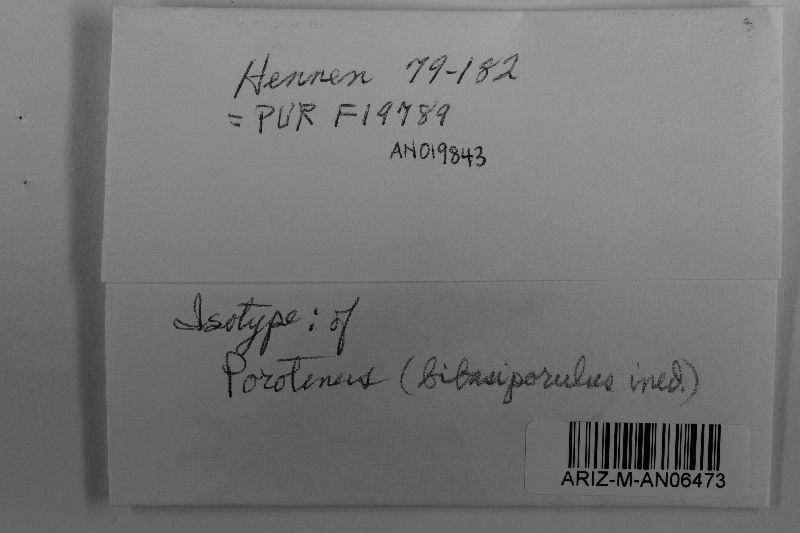 Hennen 79-182
= PUR F19789
AN019843
Isotype: of
Porotenus (bibasiporulus ined.)
ARIZ-M-AN06473